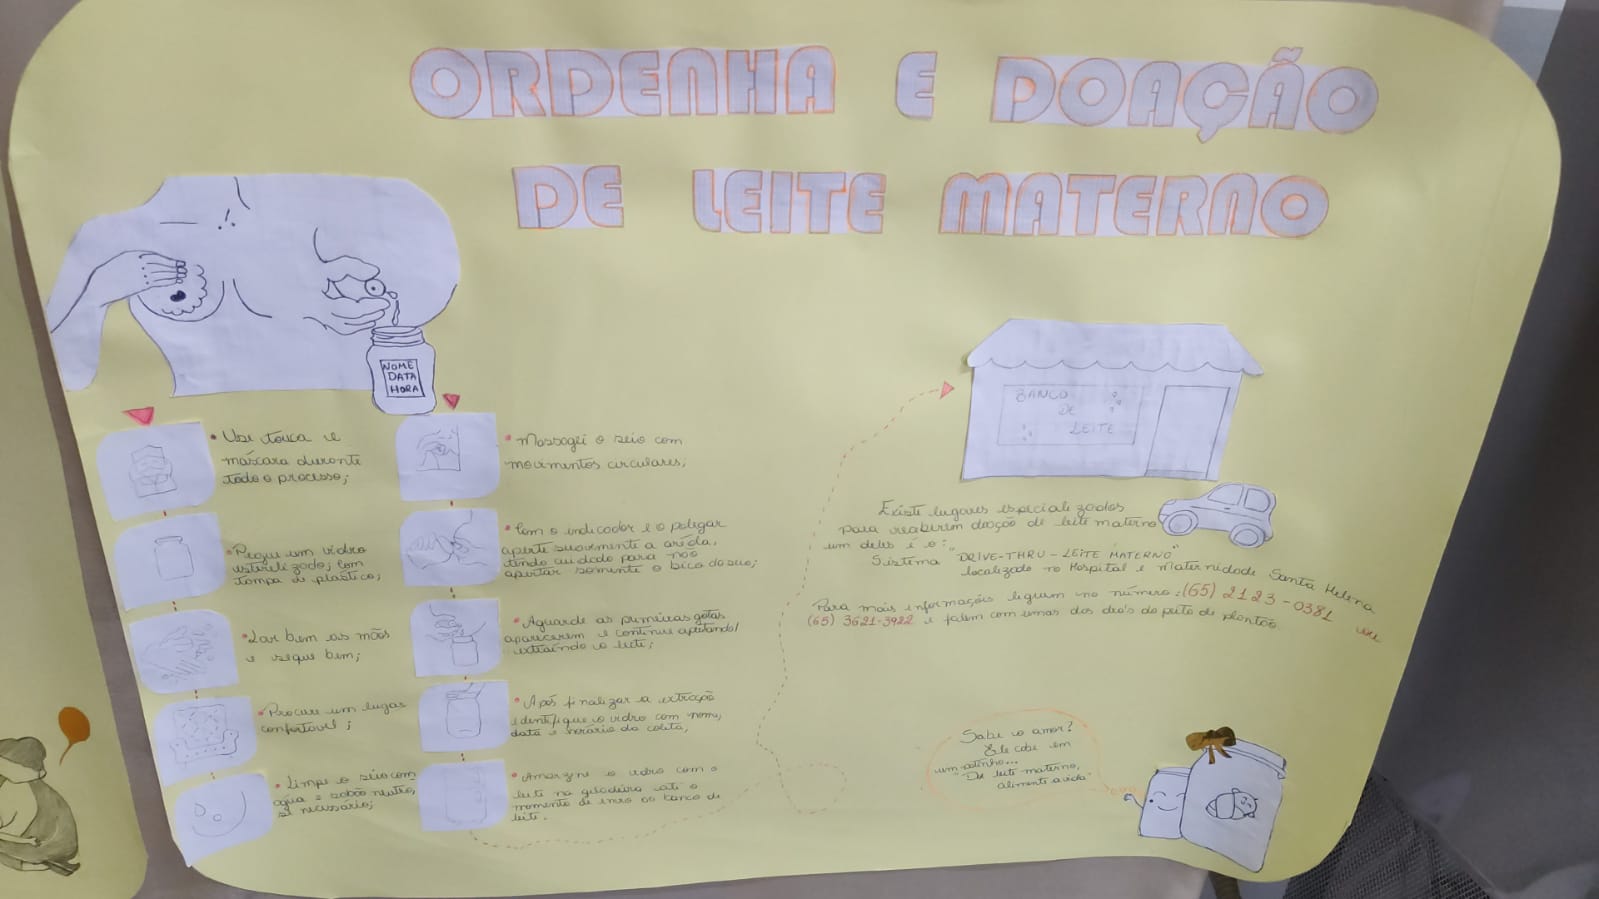 ORDENHA E DOAÇÃO
DE LEITE MATERNO
NOME
DATA
HORA
• Use touca e
máscara durante
todo o processo;
• Pegue um vidro
esterelizado; com
tampa de plástico;
• Lav bem as mãos
e seque bem;
• Procure um lugar
confortável;
• Limpe o seio com
água e sabão neutro,
se necessário;
• Massagei o seio com
movimentos circulares;
• Com o indicador e o polegar
aperte suavimente a aréola,
tendo cuidado para não
apertar somente o bico do seio;
• Aguarde as primeiras gotas
aparecerem e continue apertando/
extraindo o leite;
• Após finalizar a extração
identifique o vidro com nome,
data e horário da coleta;
• Amarzine o vidro com o
leite na geladeira até o
momento de envio ao banco de
leite.
BANCO
DE
LEITE
Existe lugares especializados
para receberem doação de leite materno
um deles é o:
Sistema "DRIVE-THRU - LEITE MATERNO"
localizado no Hospital e maternidade Santa Helena
Para mais informações liguem no número: (65) 2123-0381 ou
(65) 3621-3922 e falem com umas das deo's do peito de plantão
Sabe o amor?
Ele cabe em
um potinho...
"Da leite materno,
alimente a vida"